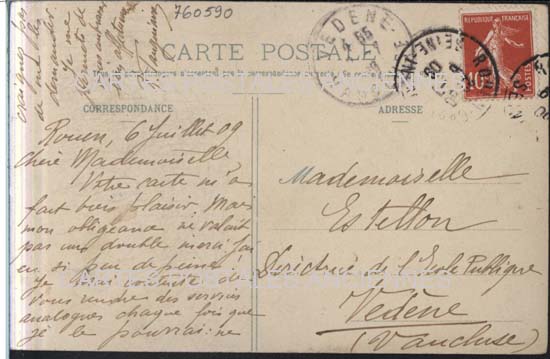 760590
CARTE POSTALE
CORRESPONDANCE
ADRESSE
REPUBLIQUE FRANÇAISE
10
POSTES
VEDENE
Rouen, 6 Juillet 09
Chère Mademoiselle,
Votre carte m'a
fait bien plaisir. Mais
mon obligeance ne valait
pas un double merci j'ai
eu si peu de peine!
Je serai contente de
vous rendre des services
analogues chaque fois que
je le pourrai: ne
craignez pas
de me les
demander
Je me
Mademoiselle
Estellon
Directrice de l'Ecole Publique
Vedène
(Vaucluse)